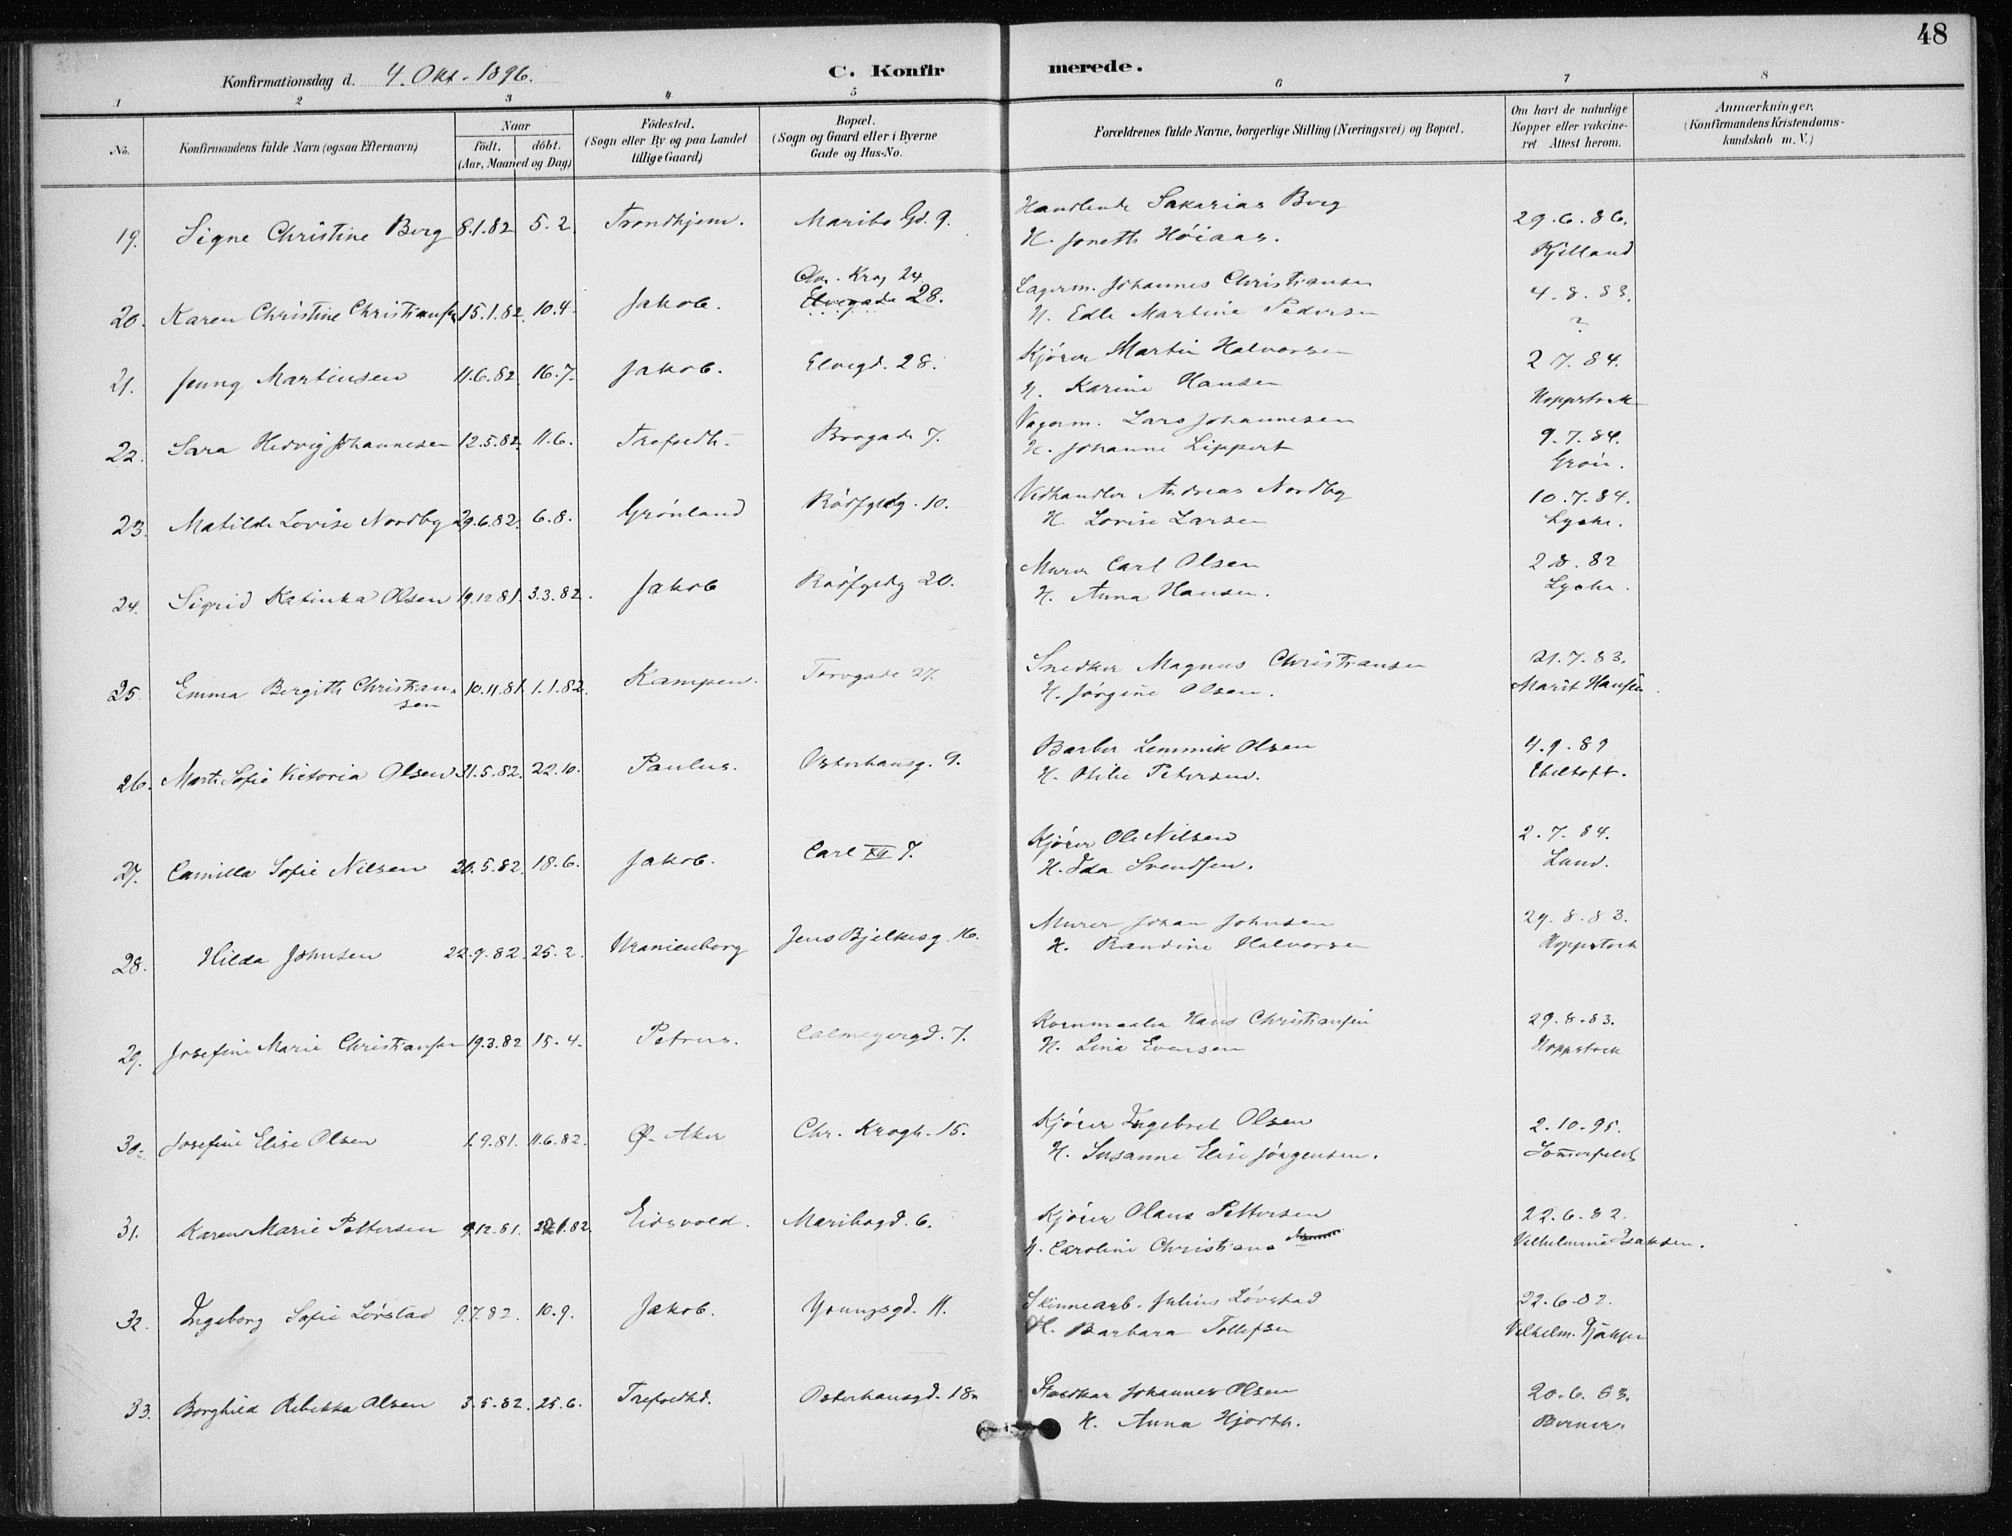 48
Konfirmationsdag d. 4. Okt. 1896.
C. Konfir merede.
1 2 3 4 5 6 7 8
No.
Konfirmandens fulde Navn (ogsaa Efternavn)
Naar
födt. döbt.
(Aar, Maaned og Dag)
Födested.
(Sogn eller By og paa Landet
tillige Gaard)
Bopæl.
(Sogn og Gaard eller i Byerne
Gade og Hus-No.
Forældrenes fulde Navne, borgerlige Stilling (Næringsvei) og Bopæl.
Om havt de naturlige
Kopper eller vakcine-
ret. Attest herom.
Anmærkninger.
(Konfirmandens Kristendoms-
kundskab m. V.)
19. Signe Christine Berg 8.1.82 5.2. Trondhjem. Maribo Gd. 9. Handlende Sakarias Berg 29.6.86.
N. Jonette Høiaas. Kjelland
Chr. Krog 24
20. Karen Christine Christiansen 15.1.82. 10.4. Jakob. Elvegade 28. Lagerm. Johannes Christiansen 4.8.83.
N. Edle Martine Pedersen ?
21. Jenny Martinsen 11.6.82. 16.7. Jakob. Elvegd. 28. Kjører Martin Halvorsen 2 7.84.
N. Karine Hansen Hoppstock
22. Sara Hedvig Johannesen 12.5.82. 11.6. Trefoldh. Brogade 7. Vognm. Lars Johannesen 9.7.84.
N. Johanne Lippert Grøn.
23. Matilde Lovise Nordby 29.6.82. 6.8. Grønland 10. Vedhandler Andreas Nordby 10.7.84.
N. Lovise Larsen Lyche.
24. Sigrid Katinka Olsen 19.12 81. 3.3.82. Jakob 20. Murer Carl Olsen 2 8.82
N. Anna Hansen. Lyche.
25. Emma Bergitte Christian- 10.11.81. 1.1.82. Kampen. Torvgade 27. Snedker Magnus Christiansen 21.7.83.
sen N. Jørgine Olsen. Marit Hansen.
26. Marth. Sofie Victoria Olsen 31.5.82. 22.10. Paulus. Osterhausg. 9. Barber Lemmik Olsen 4.9.89
N. Otilie Petersen. Ebeltoft.
27. Camilla Sofie Nilsen 20.5.82. 18.6. Jakob. Carl XII 7. Kjører Ole Nilsen 2.7.84.
N. Ida Svendsen. Lund.
28. Hilda Johnsen 22.9.82. 25.2. Uranienborg Jens Bjelkesg. 16. Murer Johan Johnsen 29.8.83.
N. Randine Halvorsen Hoppstock
29. Josefine Marie Christiansen 19.3.82 15.4. Petrus. Calmeyergd. 7. Kornmaaler Hans Christiansen 29.8.83.
N. Lina Evensen Hoppstock
30. Josefine Elise Olsen 1.9.81. 11.6.82. Ø. Aker Chr. Krogh. 15. Kjører Ingebret Olsen 2.10.95.
N. Susanne Elise Jørgensen. Sommerfeldt
31. Karen Marie Pettersen 9.12.81. 1.82. Eidsvold. Maribogd. 6. Kjører Olaus Pettersen 22.6.82.
N. Caroline Christians Vilhelmine Isaksen.
32. Ingeborg Sofie Lørstad 9.7.82. 10.9. Jakob. Youngsgd. 11. Skinnearb. Julius Løvstad 22.6.82.
N. Barbara Tollefsen Vilhelm.
33. Borghild Rebekka Olsen 3.5.82. 25.6. Trefoldhd. Osterhausgd. 18. Johannes Olsen 20.6.83.
N. Anna Hjorth. Berner.